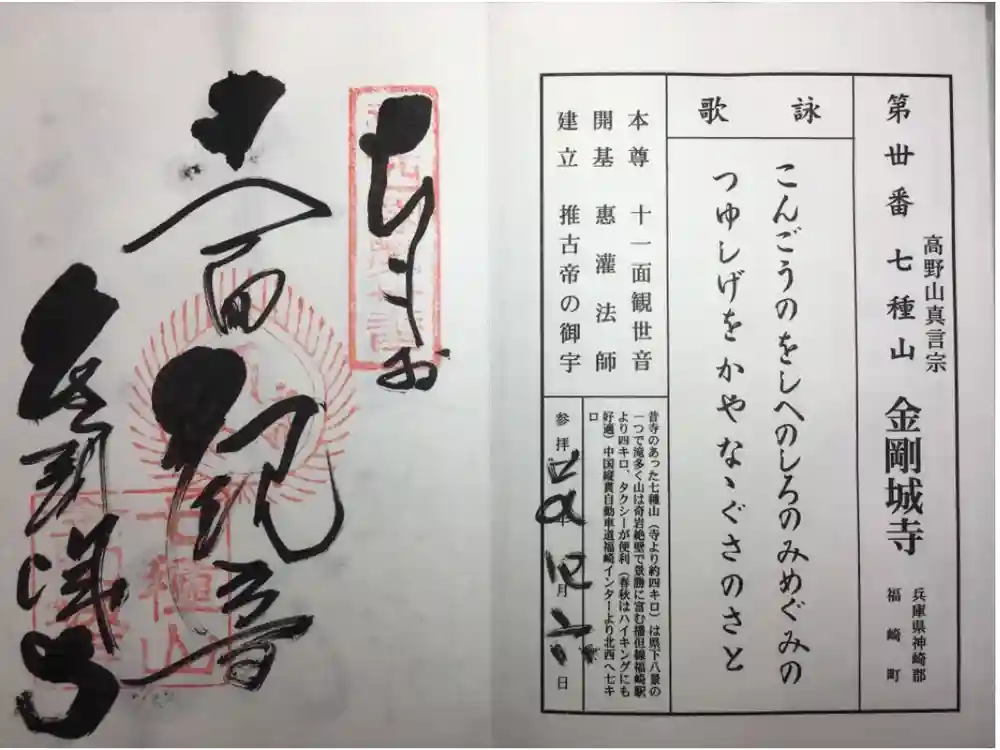 高野山真言宗
第丗番 七種山 金剛城寺
兵庫県神崎郡
福崎町
詠歌
こんごうのをしへのしろのみめぐみの
つゆしげをかやなゝぐさのさと
本尊 十一面観世音
開基 惠灌法師
建立 推古帝の御宇
昔寺のあった七種山(寺より約四キロ)は県下八景の
一つで滝多く山は奇岩絶壁で景勝に富む播但線福崎駅
より四キロ、タクシーが便利(春秋はハイキングにも
好適)中国縦貫自動車道福崎インターより北西へ七キ
ロ
参拝 年 月 日
十一面観音
金剛城寺
七種山